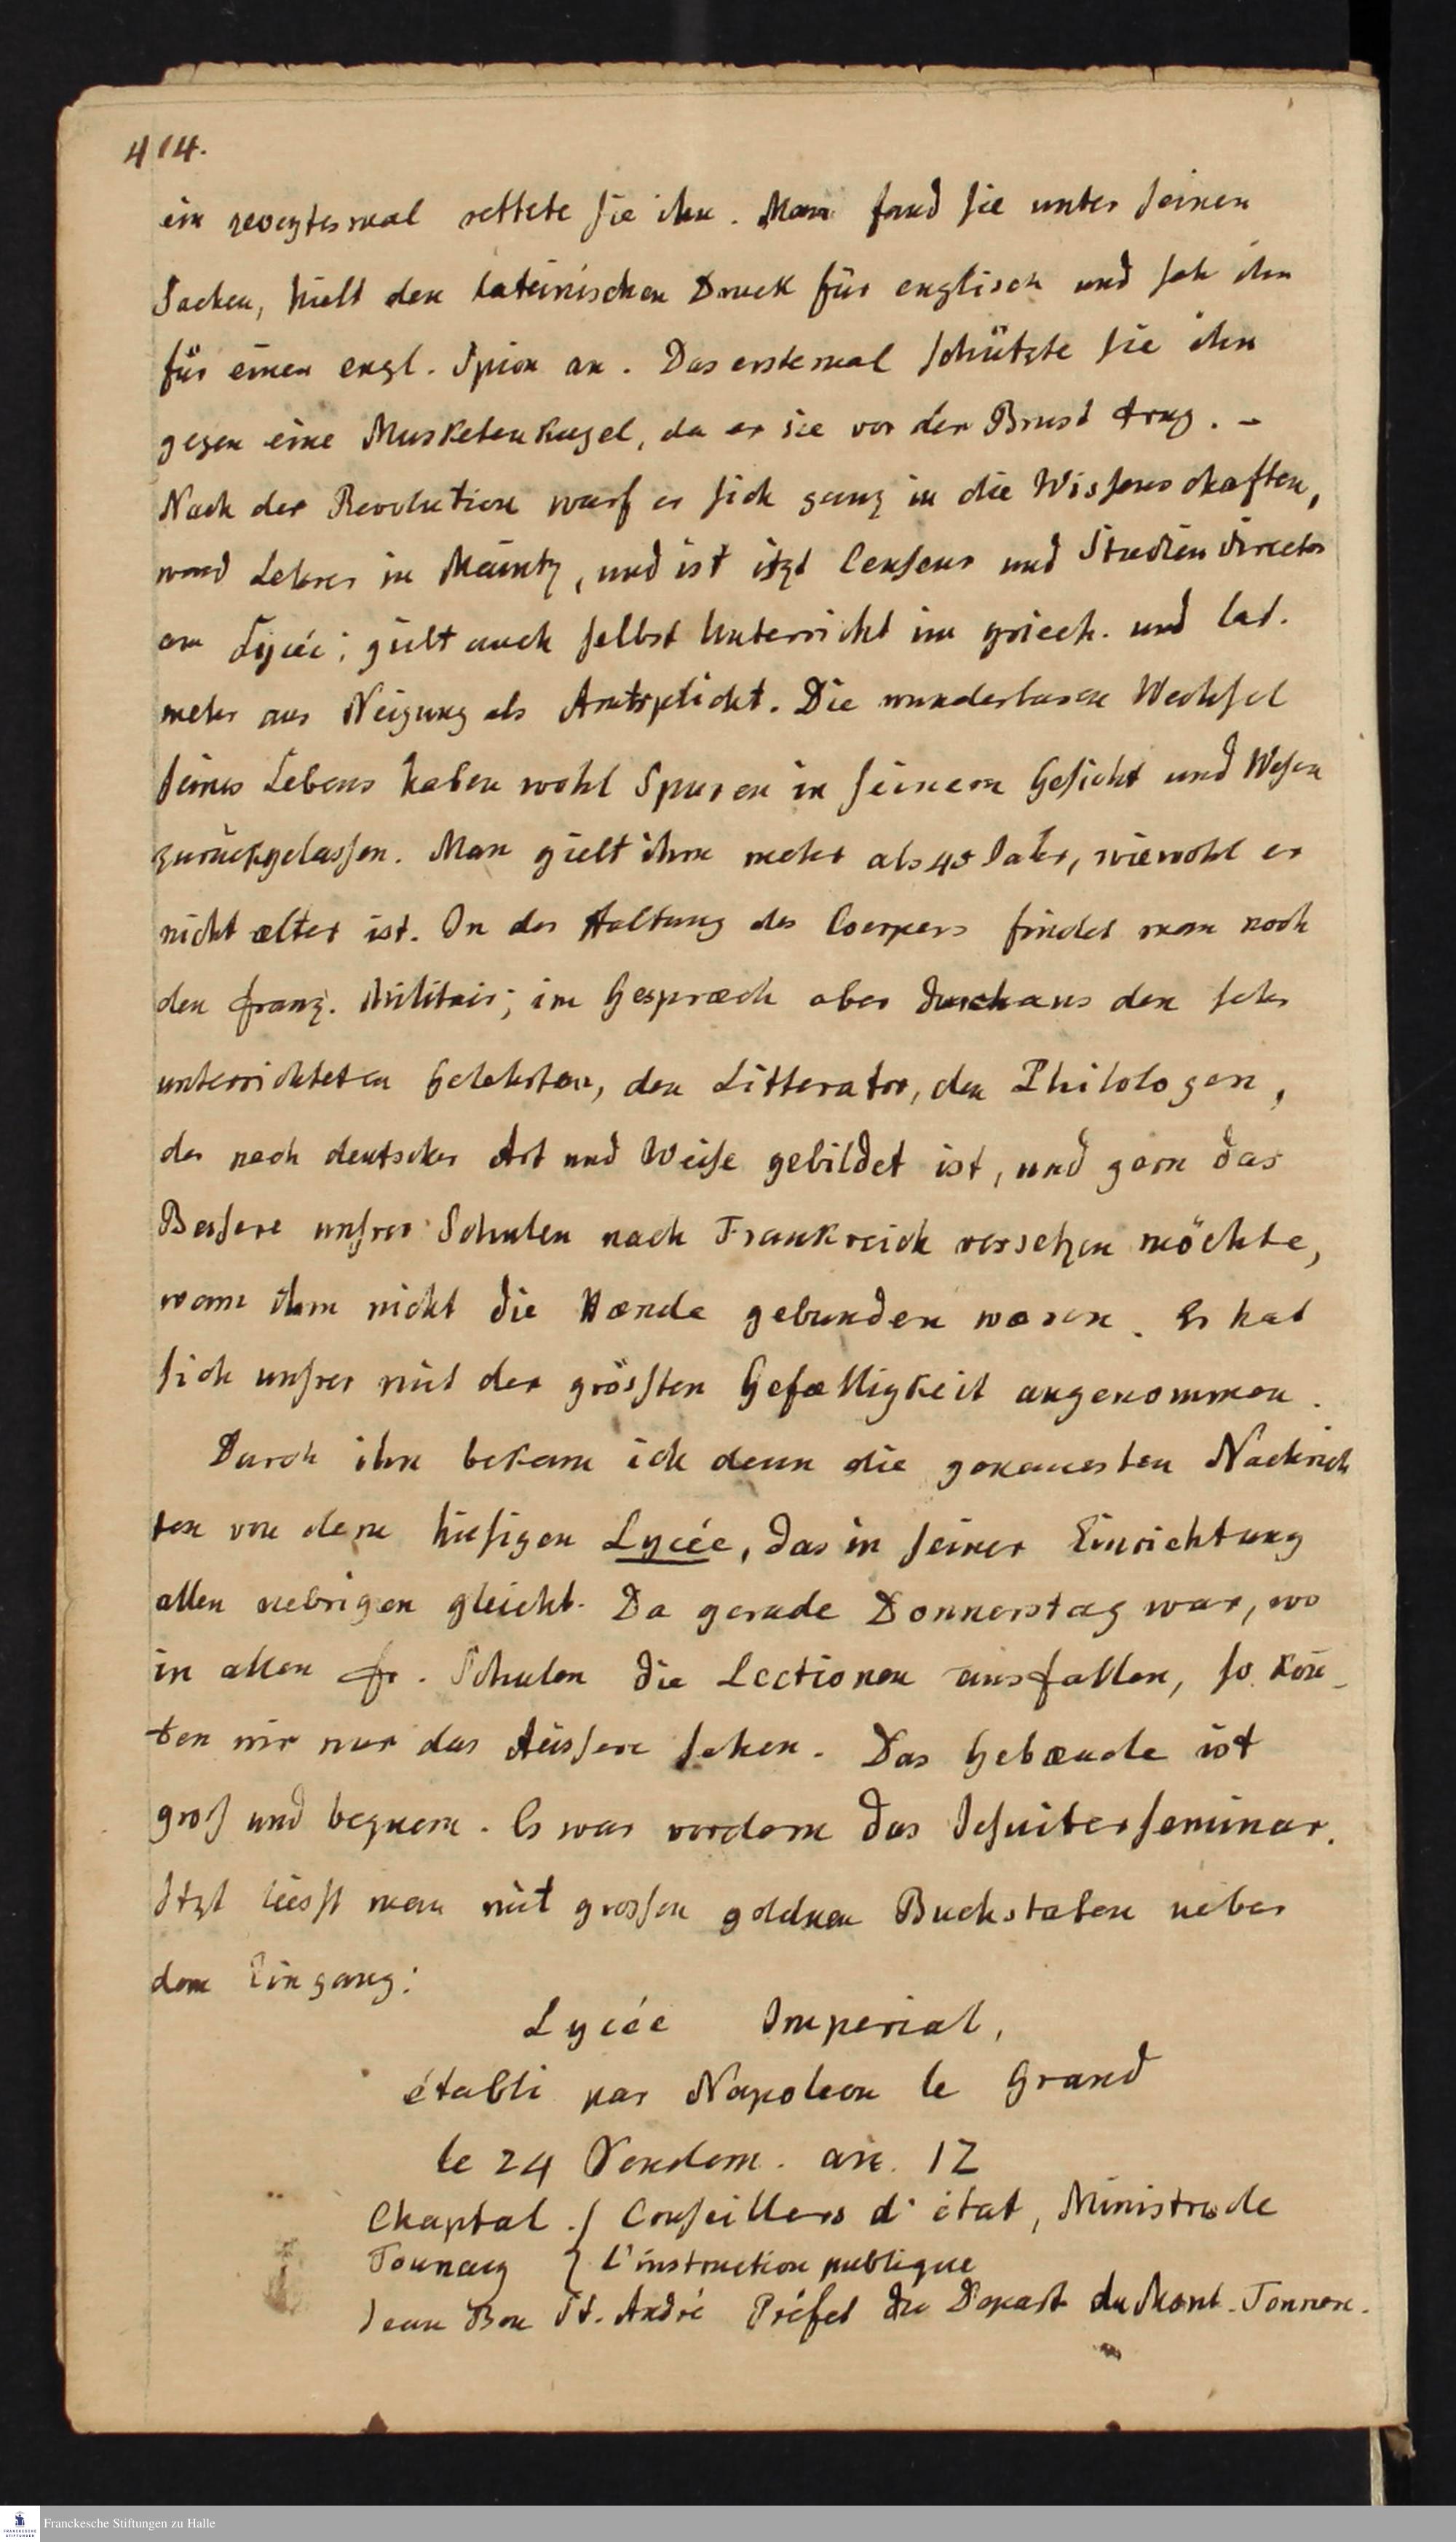 414.
ein zweytesmal rettete sie ihn. Man fand sie unter seinen
Sachen, hielt den lateinischen Druck für englisch und sah ihn
für einen engl. Spion an. Das erstemal schützte sie ihn
gegen eine Musketenkugel, da er sie vor der Brust trug. –
Nach der Revolution warf er sich ganz in die Wissenschaften,
ward Lehrer in Maintz, und ist itzt Censeur und Studiendirector
am Lycée; giebt auch selbst Unterricht im griech. und lat.
mehr aus Neigung als Amtspflicht. Die wunderbaren Wechsel
seines Lebens haben wohl Spuren in seinem Gesicht und Wesen
zurückgelassen. Man giebt ihm mehr als 45 Jahr, wiewohl er
nicht ælter ist. In der Haltung des Coerpers findet man noch
den franz. Militair; im Gespræch aber durchaus den sehr
unterrichteten Gelehrten, den Litterator, den Philologen,
der nach deutscher Art und Weise gebildet ist, und gern das
Bessere unsrer Schulen nach Frankreich versetzen möchte,
wenn ihm nicht die Hænde gebunden wæren. Er hat
sich unsrer mit der grössten Gefælligkeit angenommen.
Durch ihn bekam ich denn die genauesten Nachrich
ten von dem hiesigen Lycée, das in seiner Einrichtung
allen uebrigen gleicht. Da gerade Donnerstag war, wo
in allen fr. Schulen die Lectionen ausfallen, so kon̄-
ten wir nur das Äussere sehen. Das Gebæude ist
groß und bequem. Es war vordem das Jesuiterseminar.
Itzt liesst man mit grossen goldnen Buchstaben ueber
dem Eingang:
Lycée Imperial,
établi par Napoleon le Grand
le 24 Vendem. an. 12
Chaptal. } Conseillers d'état, Ministres de
Fourcroy } l'instruction publique
Jean Bon St. André Préfet du Depart du Mont-Tonnere.
Franckesche Stiftungen zu Halle